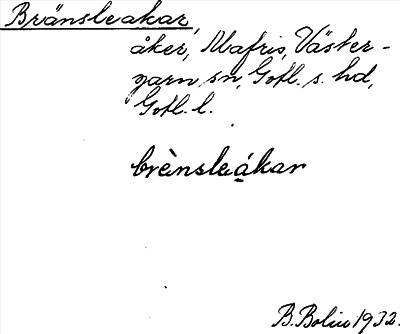 Bränsleakar,
åker, Mafris, Väster-
garn sn, Gotl. s. hd,
Gotl. l.
brènsleákar
B. Bolin 1932.